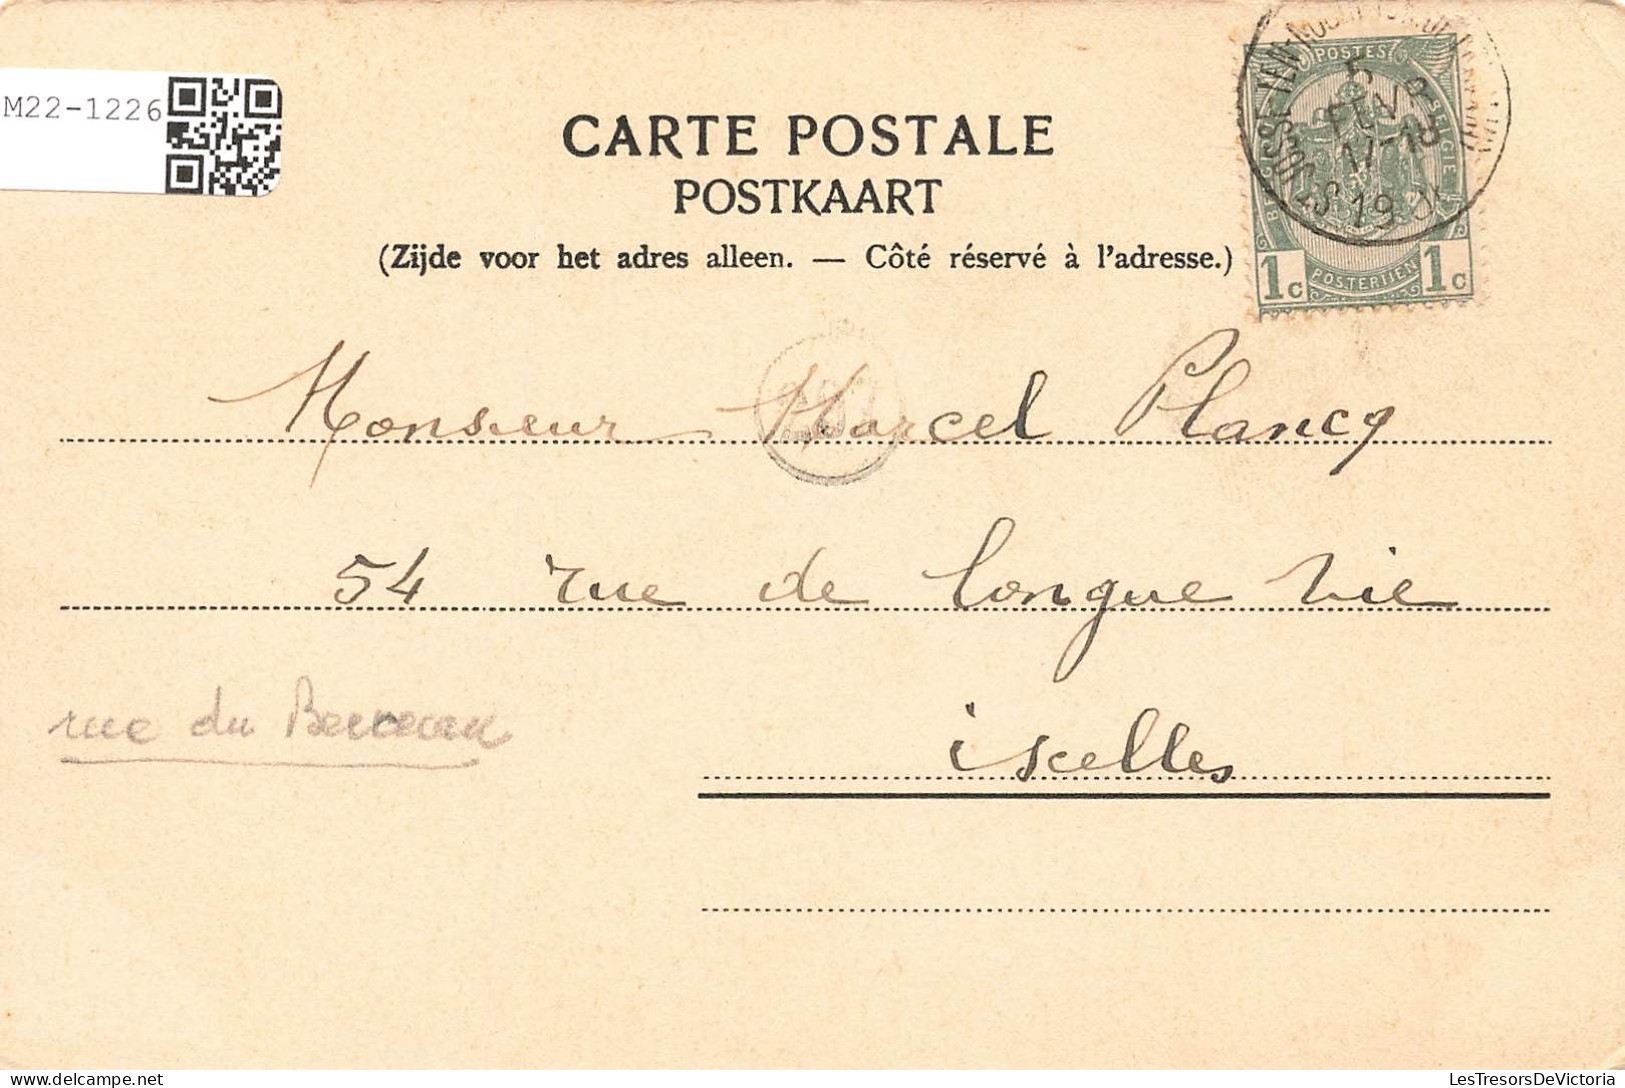 M22-1226
CARTE POSTALE
POSTKAART
(Zijde voor het adres alleen. — Côté réservé à l'adresse.)
POSTES
5
FEVR
17-18
19
1c POSTERIJEN 1c
Monsieur Marcel Plancq
54 rue de longue vie
rue du
ixelles
LesTresorsDeVictoria